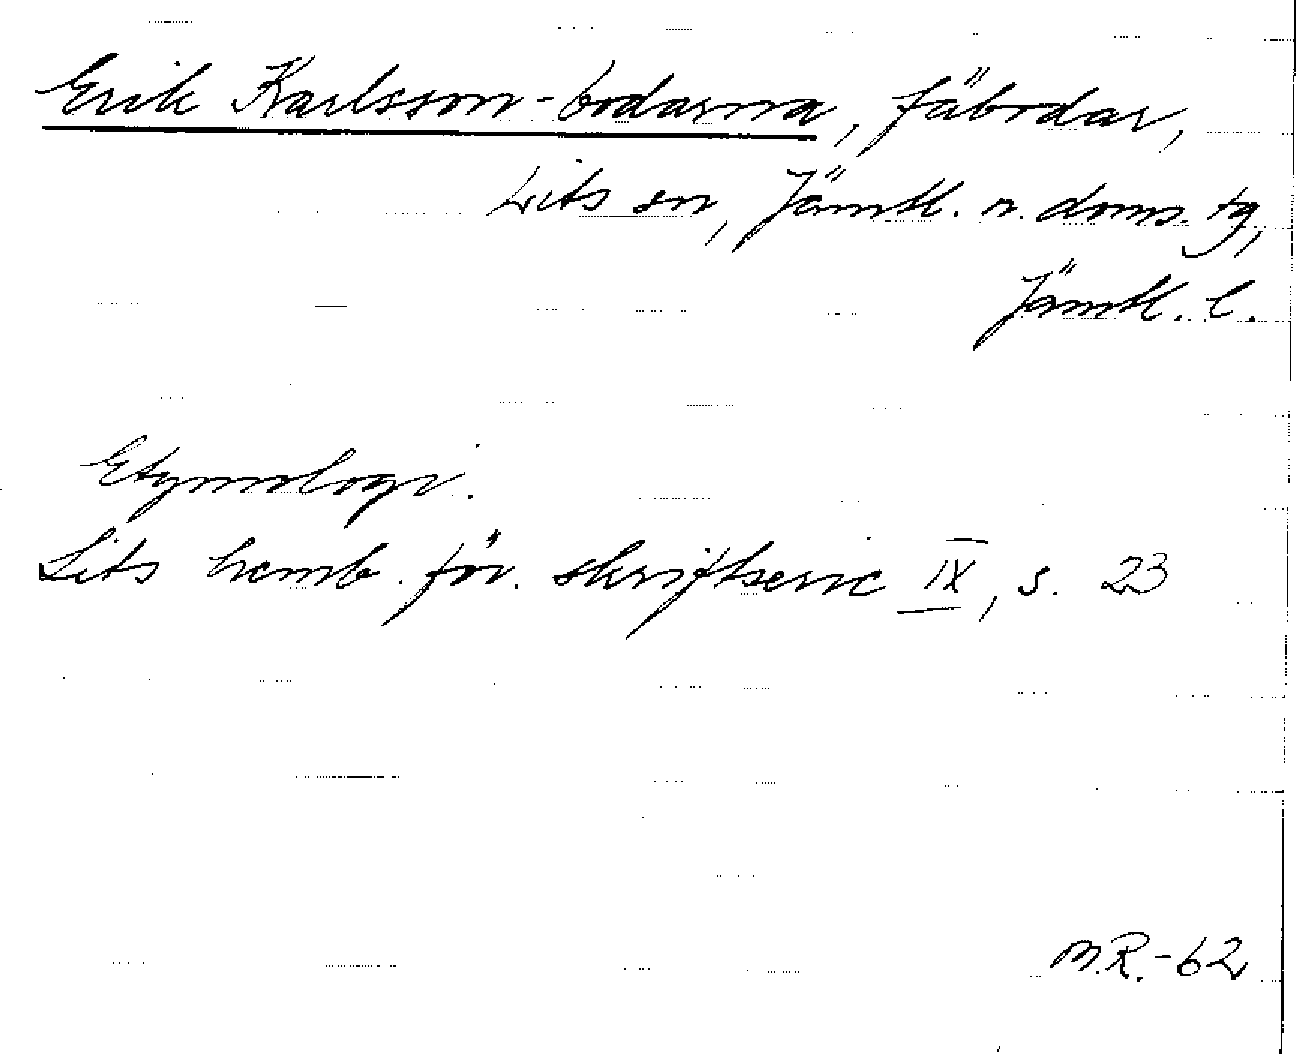 Erik Karlsson-bodarna, fäbodar,
Lits sn, Jämtl. n. doms. tg,
Jämtl. l.
Etymologi.
Lits hemb. för. skriftserie IX, s. 23
M.R.-62